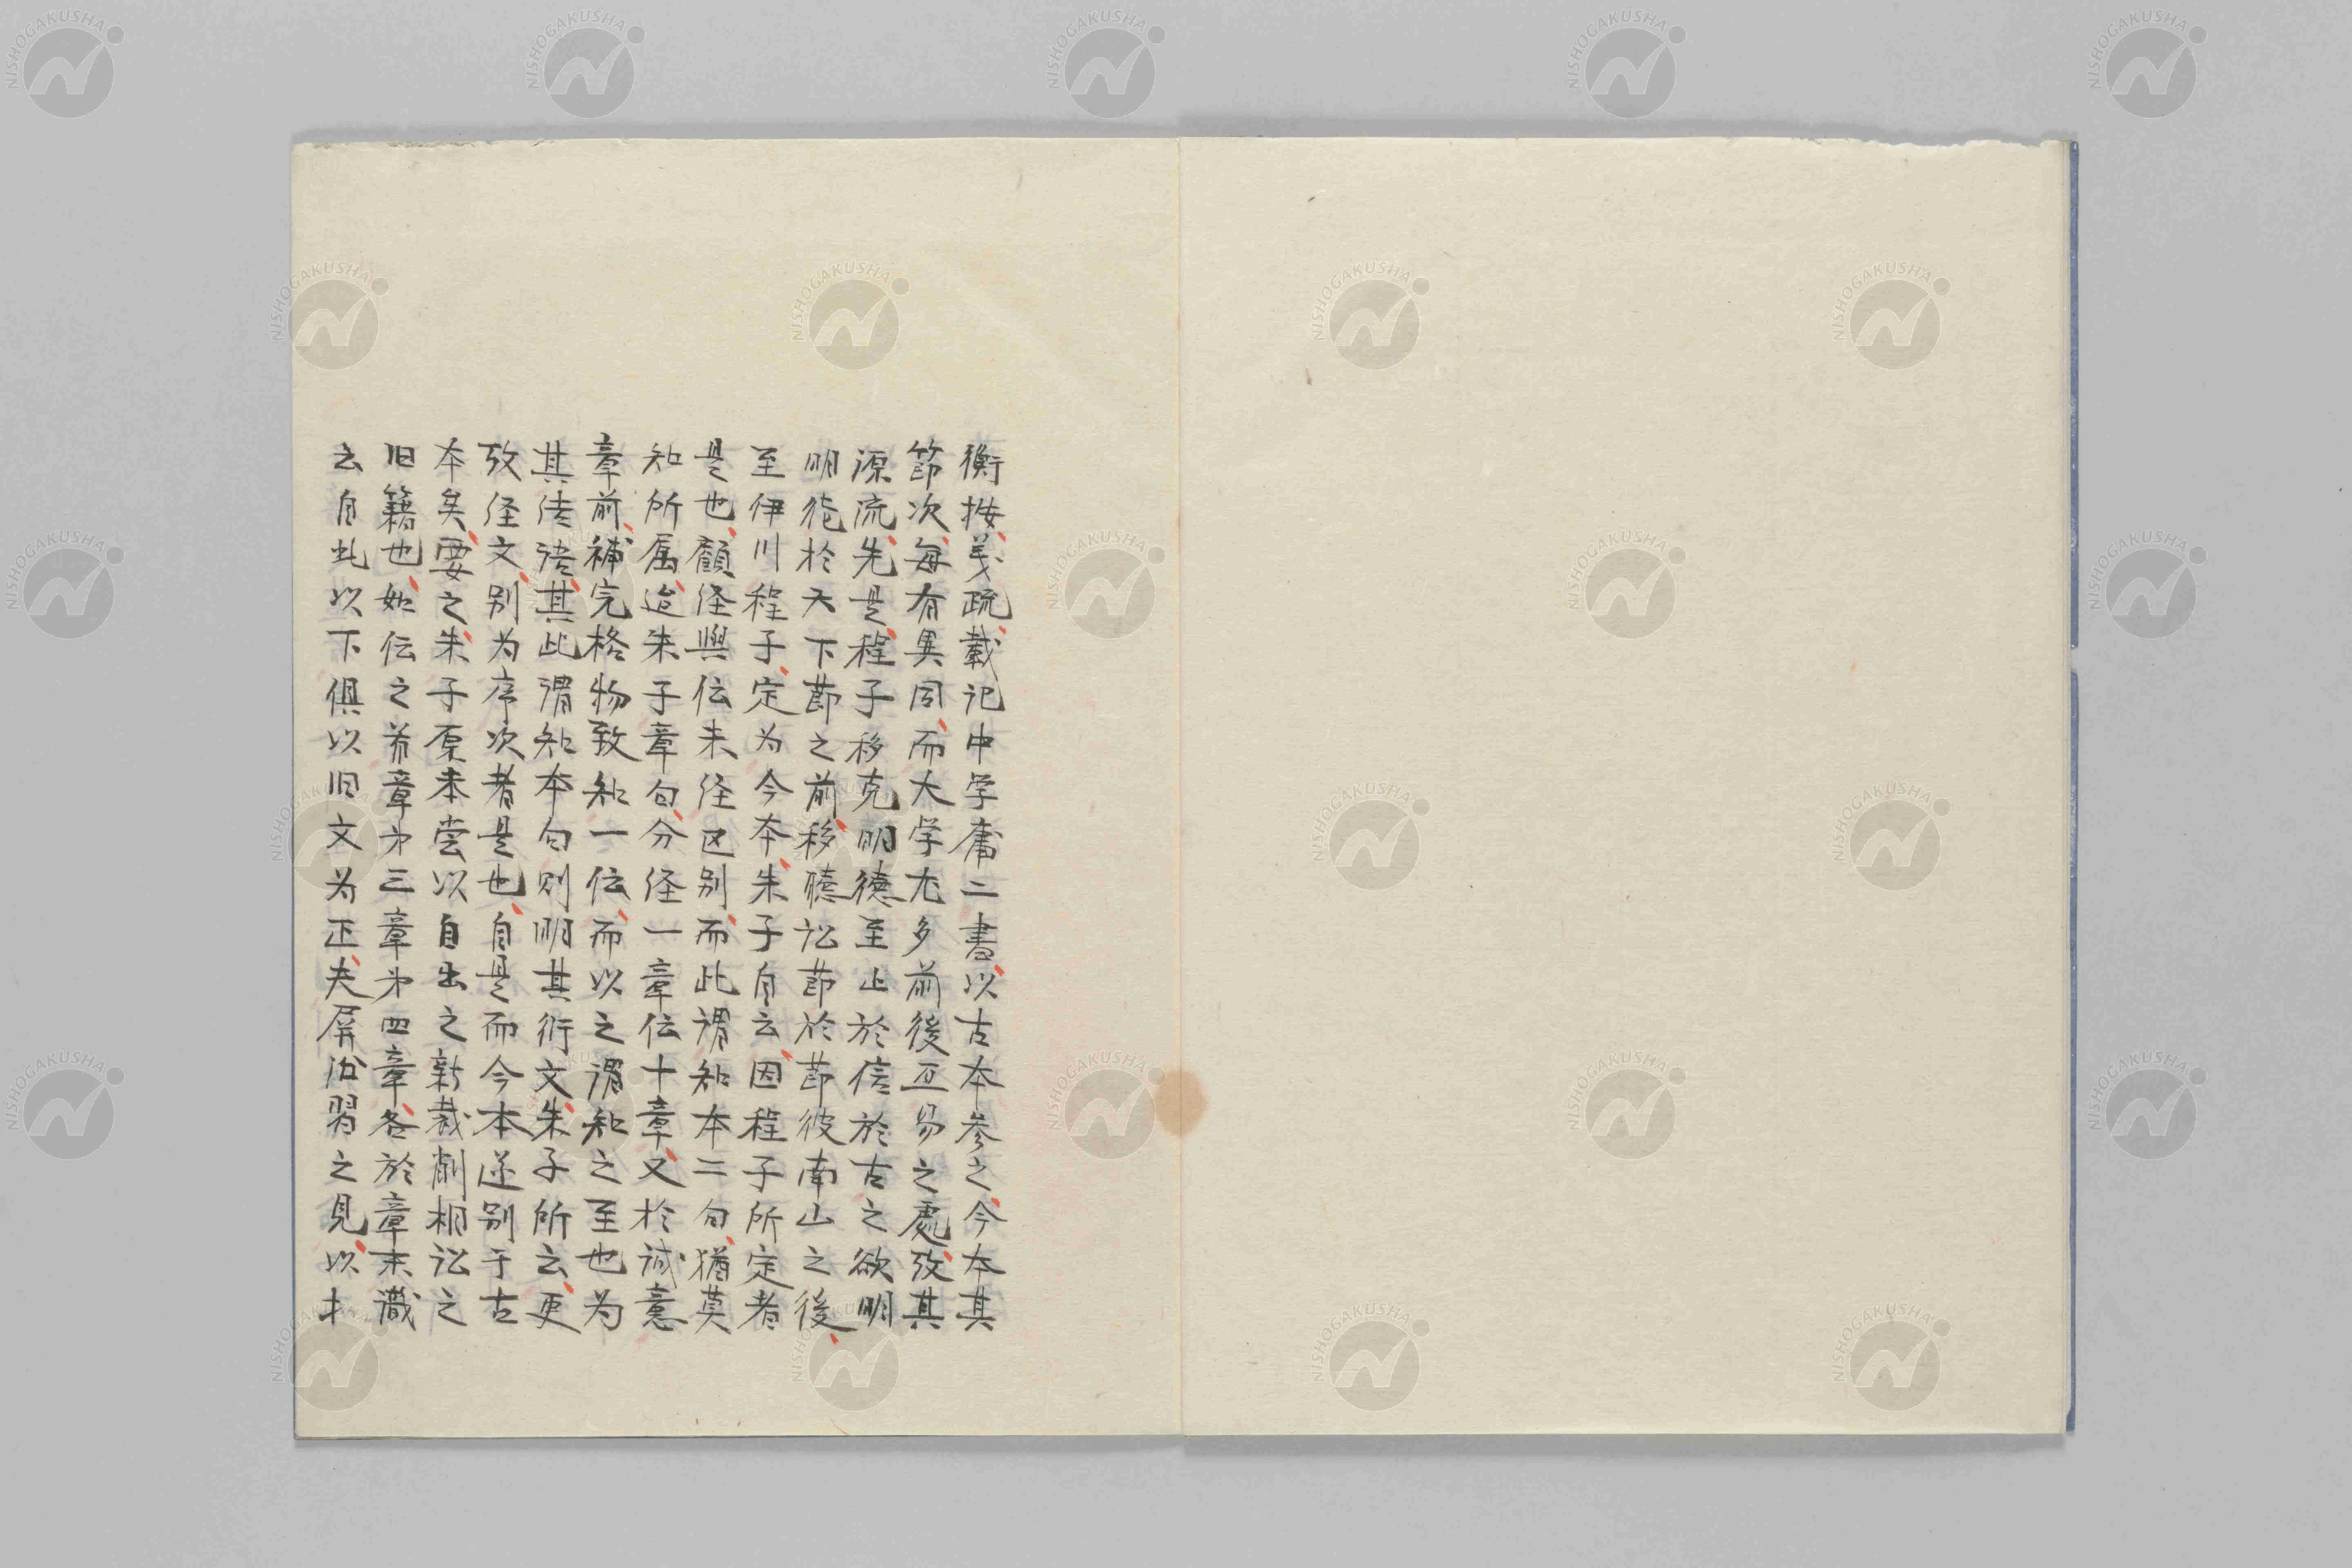 衡按義疏載記中学庸二書以古本参之今本其
節次每有異同而大学尤多前後互易之處攷其
源流先是程子移克明德至止於信於古之欲明
明德於天下節之前移聴訟節於節彼南山之後
至伊川程子定为今本朱子自云因程子所定者
是也顧径與伝未径区别而此謂知本二句猶莫
知所属迨朱子章句分径一章伝十章又於誠意
章前補完格物致知一伝而以之謂知之至也为
其结語其此謂知本句则明其衍文朱子所云更
攷径文别为序次者是也自是而今本逆别于古
本矣要之朱子原未尝以自出之新裁削相訟之
旧籍也如伝之首章㐧三章㐧四章各於章末識
云自此以下俱以旧文为正夫屏沿習之見以扌
NISHOGAKUSHA